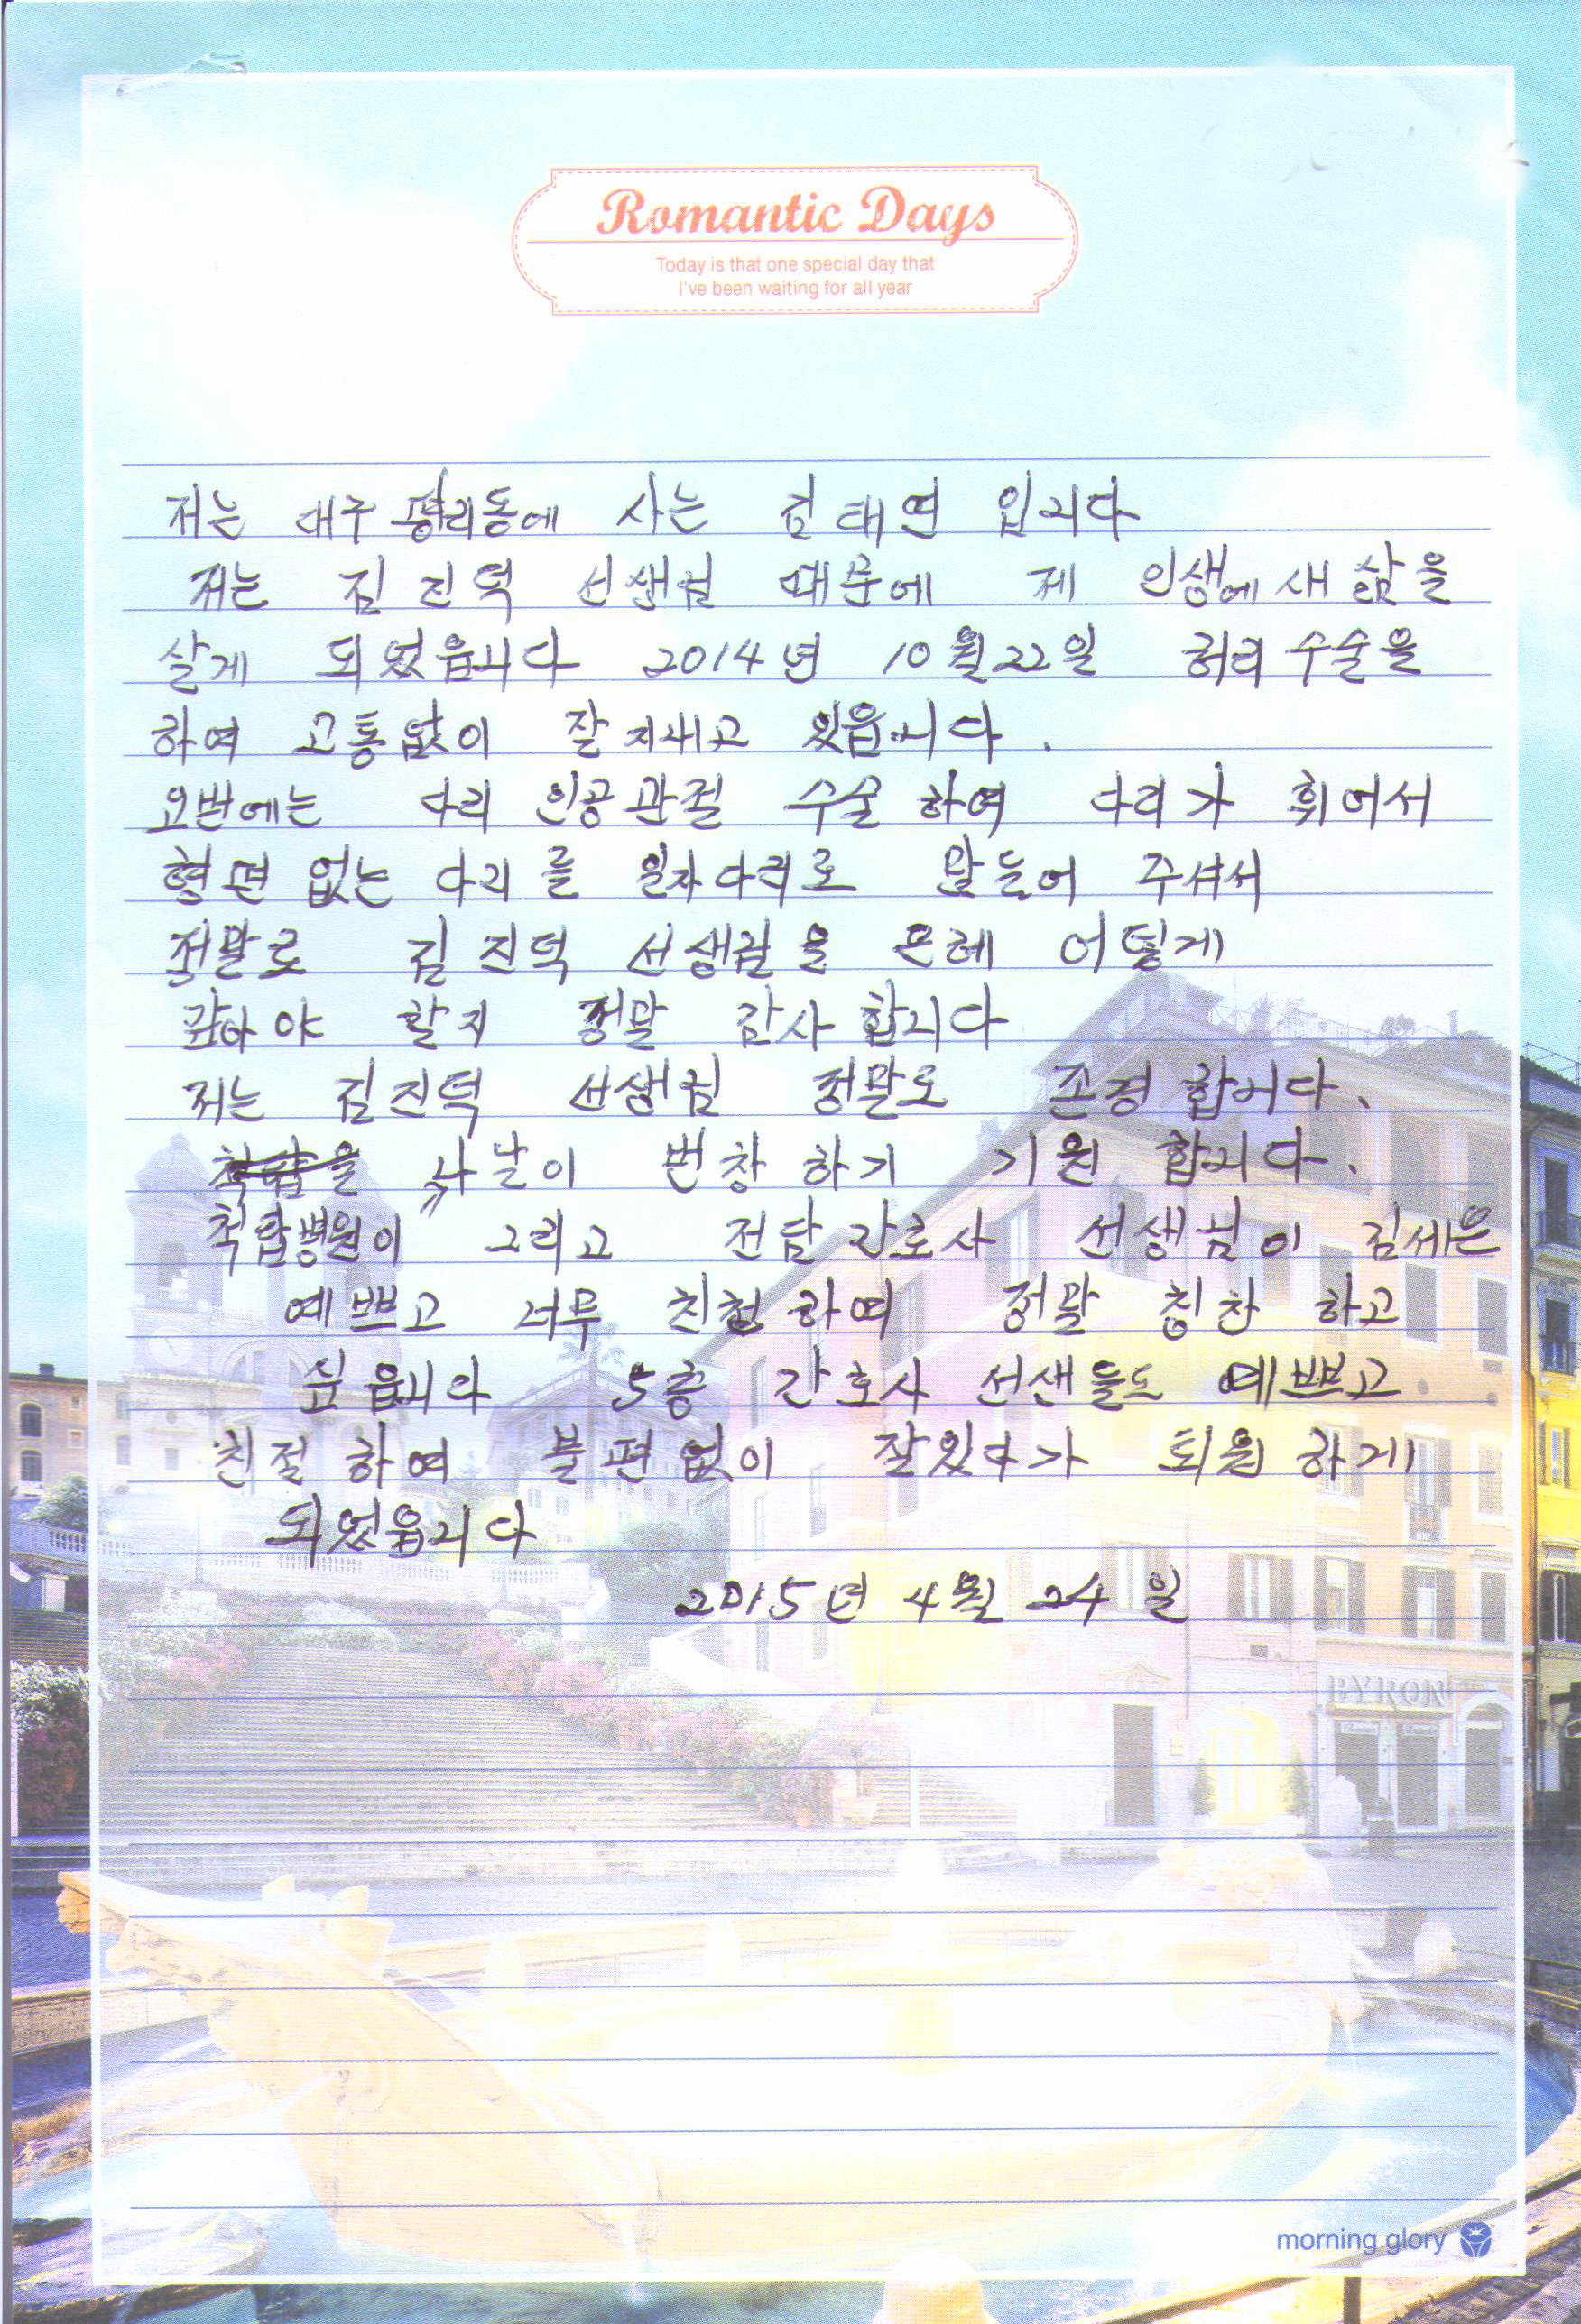 Romantic Days
Today is that one special day that
I've been waiting for all year
저는 대구 평리동에 사는 김태연 입니다
저는 김진덕 선생님 때문에 제 인생에 새 삶을
살게 되었읍니다 2014년 10월 22일 허리 수술을
하여 고통없이 잘 지내고 있읍니다.
요번에는 다리 인공관절 수술 하여 다리가 휘어서
형편 없는 다리를 일자다리로 만들어 주셔서
정말로 김진덕 선생님을 은혜 어떻게
갚아야 할지 정말 감사 합니다
저는 김진덕 선생님 정말로 존경 합니다.
을 나날이 번창 하기 기원 합니다.
척탑병원이 그리고 전담 간호사 선생님이 김세은
예쁘고 너무 친철 하여 정말 칭찬 하고
싶읍니다 5층 간호사 선샌들도 예쁘고
친절 하여 불편 없이 잘있다가 퇴원 하게
되었읍니다
2015년 4월 24일
BYRON
morning glory